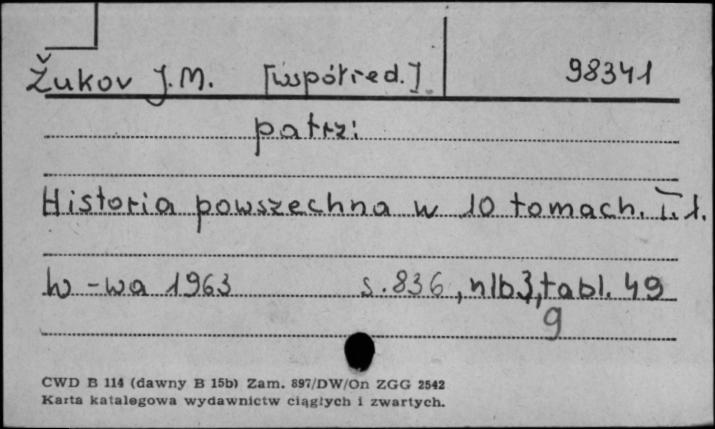 Žukov J.M. [współred.] 98341
patrz:
Historia powszechna w 10 tomach. T. 1.
W-wa 1963 s. 836, nlb 3, tabl. 49
9
CWD B 114 (dawny B 15b) Zam. 897/DW/On ZGG 2542
Karta katalogowa wydawnictw ciągłych i zwartych.